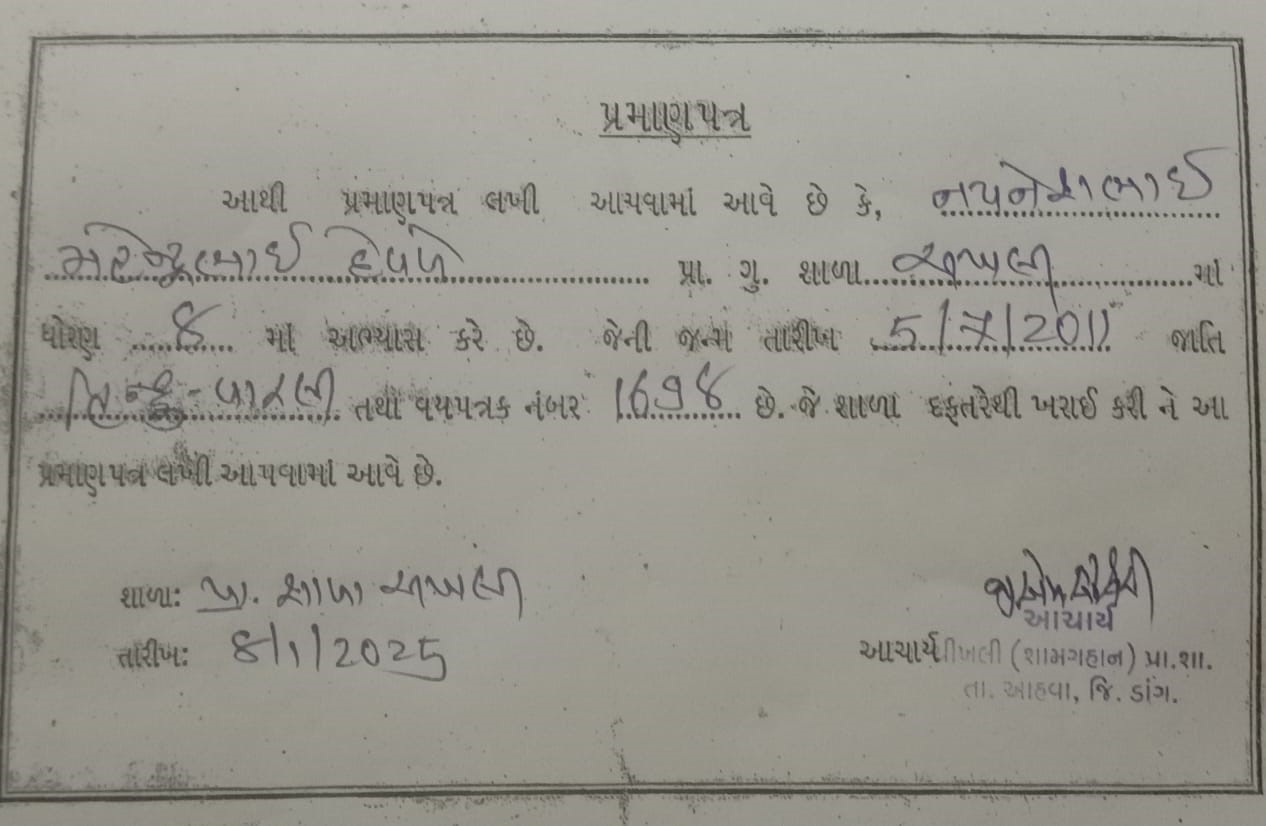 પ્રમાણપત્ર
આથી પ્રમાણપત્ર લખી આપવામાં આવે છે કે, નયનેશભાઈ
મહેન્દ્રભાઈ દેવળે પ્રા. ગુ. શાળા ચીખલી માં
ધોરણ 8 માં અભ્યાસ કરે છે. જેની જન્મ તારીખ 5/7/2011 જાતિ
હિન્દુ - વારલી તથા વયપત્રક નંબર 1698 છે. જે શાળા દફતરેથી ખરાઈ કરી ને આ
પ્રમાણપત્ર લખી આપવામાં આવે છે.
શાળા: પ્રા. શાળા ચીખલી
તારીખ: 8/1/2025
આચાર્ય
આચાર્ય ચીખલી (શામગહાન) પ્રા.શા.
તા. આહવા, જિ. ડાંગ.